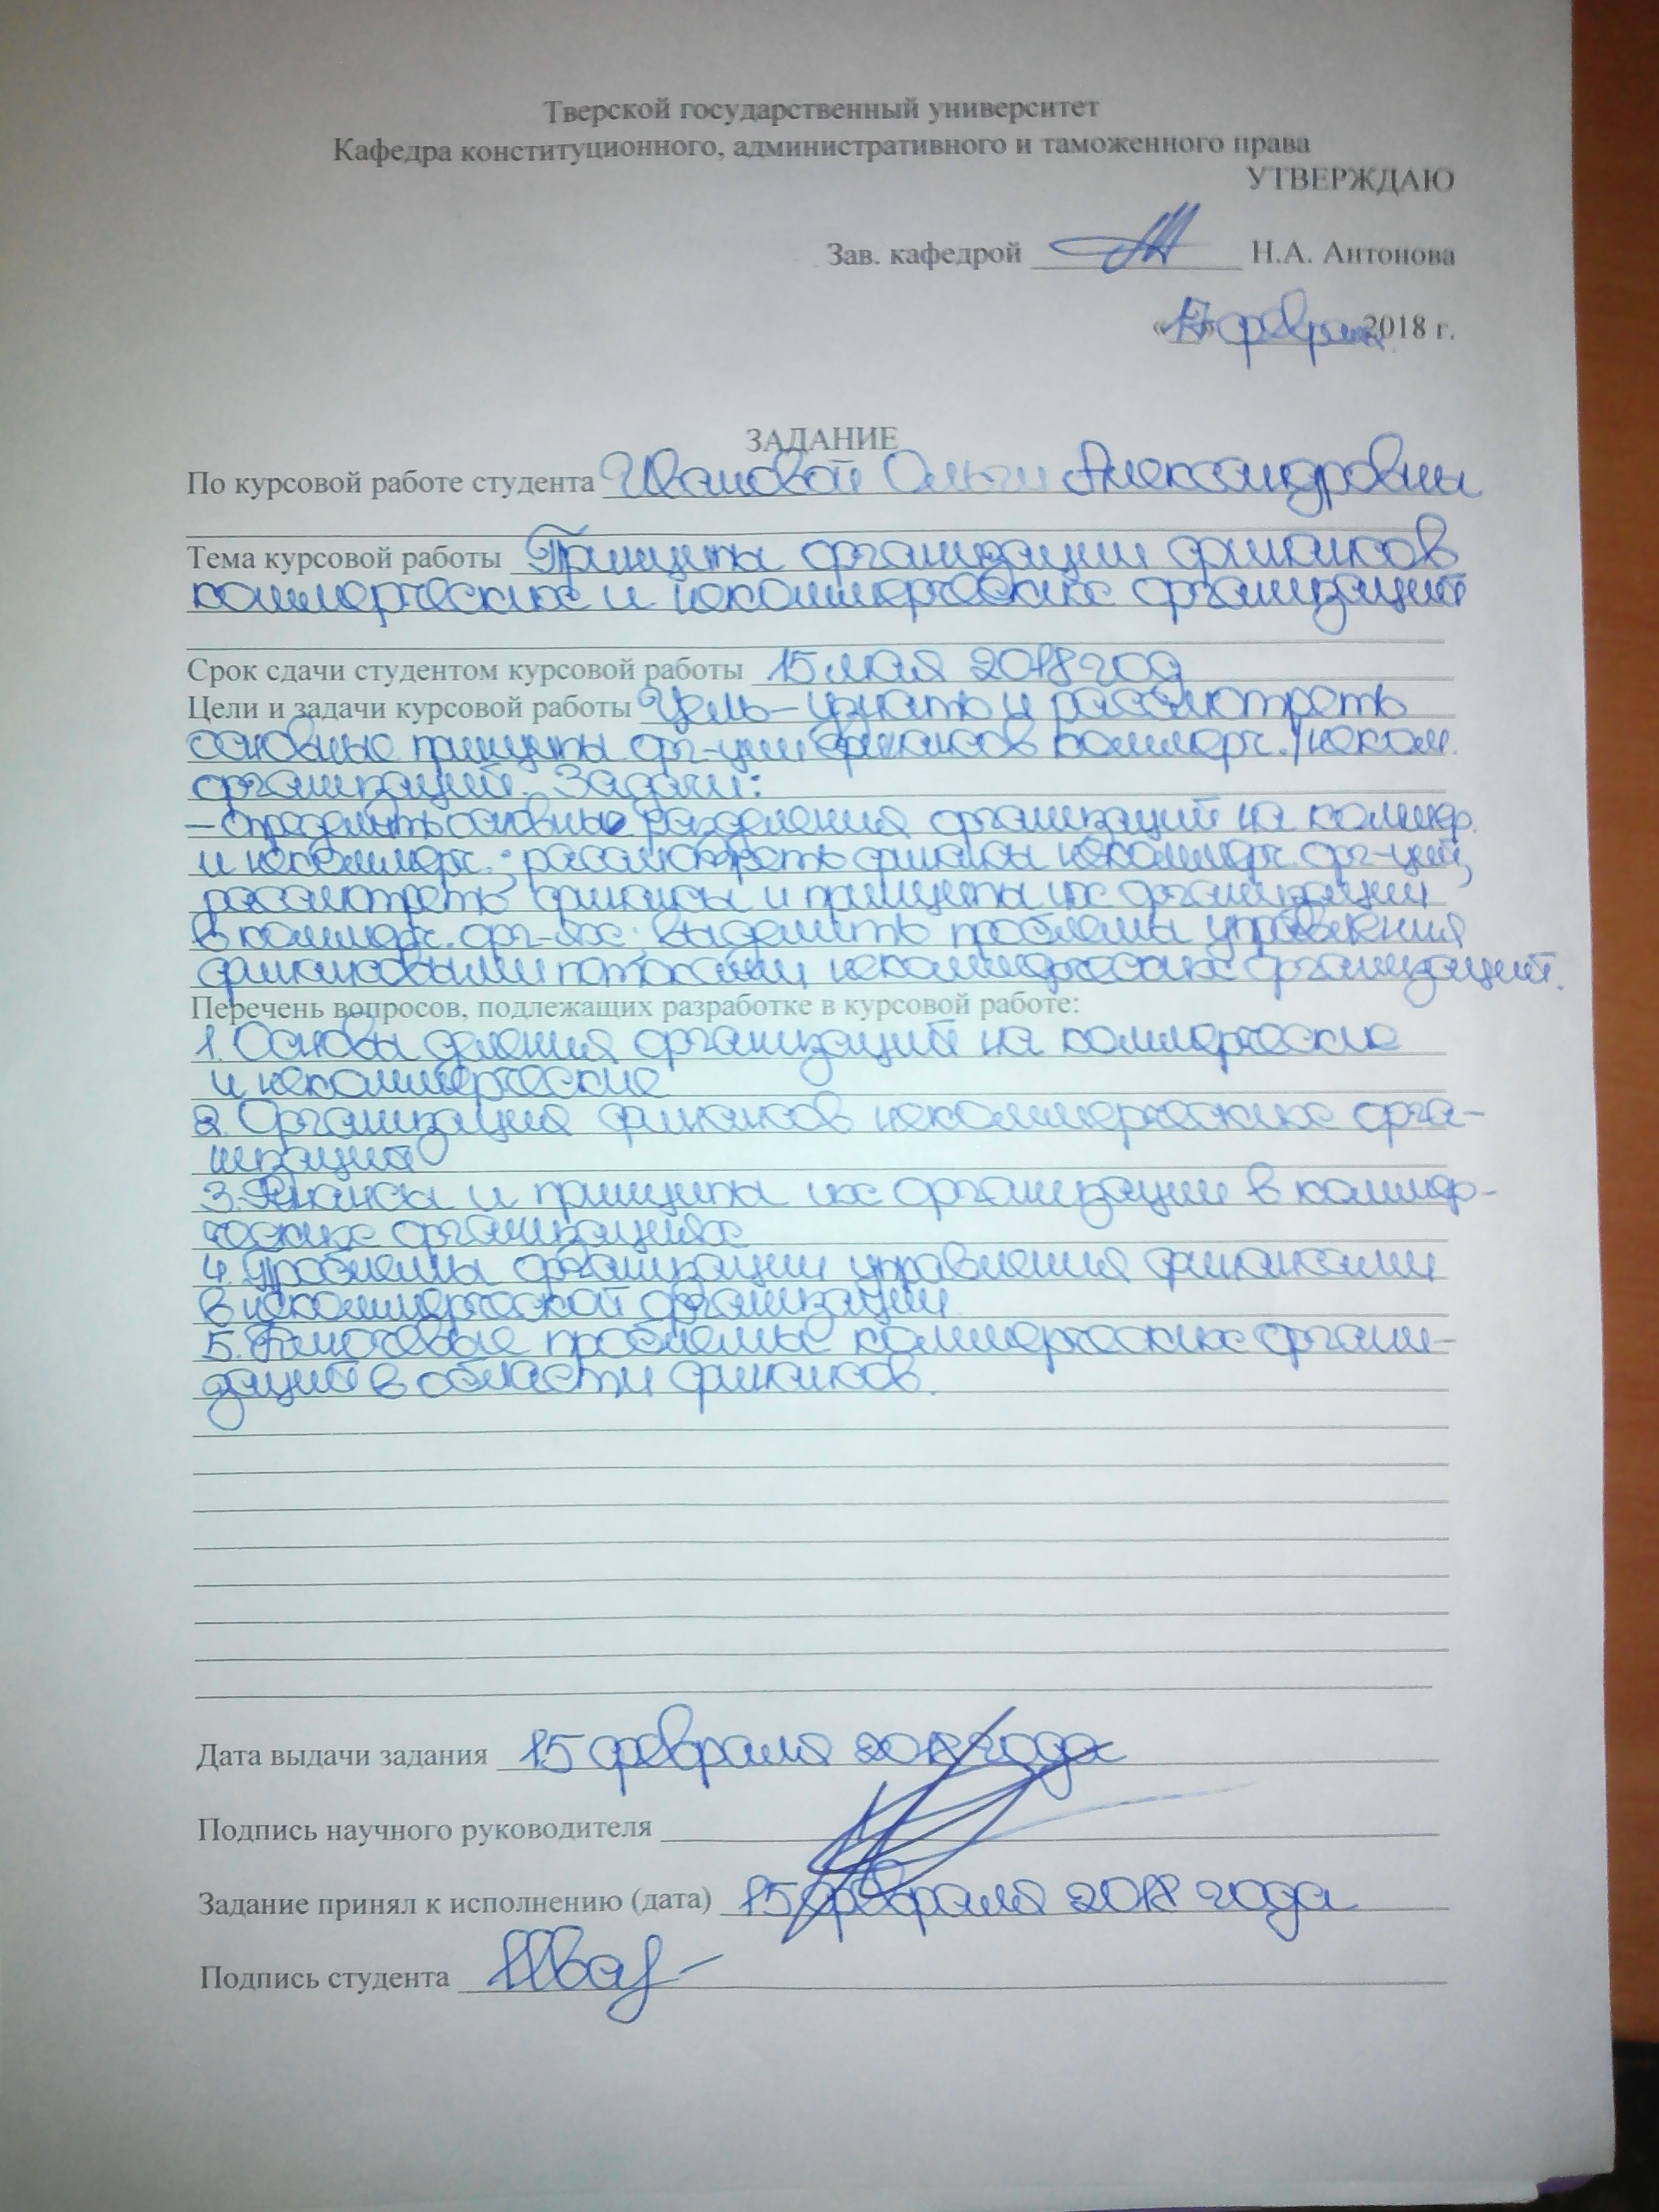 Тверской государственный университет
Кафедра конституционного, административного и таможенного права
УТВЕРЖДАЮ
Зав. кафедрой Н.А. Антонова
« » февраля 2018 г.
ЗАДАНИЕ
По курсовой работе студента Ивановой Ольги Александровны
Тема курсовой работы Принципы организации финансов
коммерческих и некоммерческих организаций
Срок сдачи студентом курсовой работы 15 мая 2018 год
Цели и задачи курсовой работы Цель – узнать и рассмотреть
основные принципы орг-ции финансов коммерч./неком.
организаций. Задачи:
– определить основные разделения организаций на коммер.
и некоммерч.; рассмотреть финансы некоммерч. орг-ций,
рассмотреть финансы и принципы их организации
в коммерч. орг-ях; выделить проблемы управления
финансовыми потоками некоммерческих организаций.
Перечень вопросов, подлежащих разработке в курсовой работе:
1. Основы деления организаций на коммерческие
и некоммерческие
2. Организация финансов некоммерческих орга-
низаций
3. Финансы и принципы их организации в коммер-
ческих организациях
4. Проблемы организации управления финансами
в некоммерческой организации
5. Ключевые проблемы коммерческих органи-
заций в области финансов.
Дата выдачи задания 15 февраля 2018 года
Подпись научного руководителя
Задание принял к исполнению (дата) 15 февраля 2018 года
Подпись студента